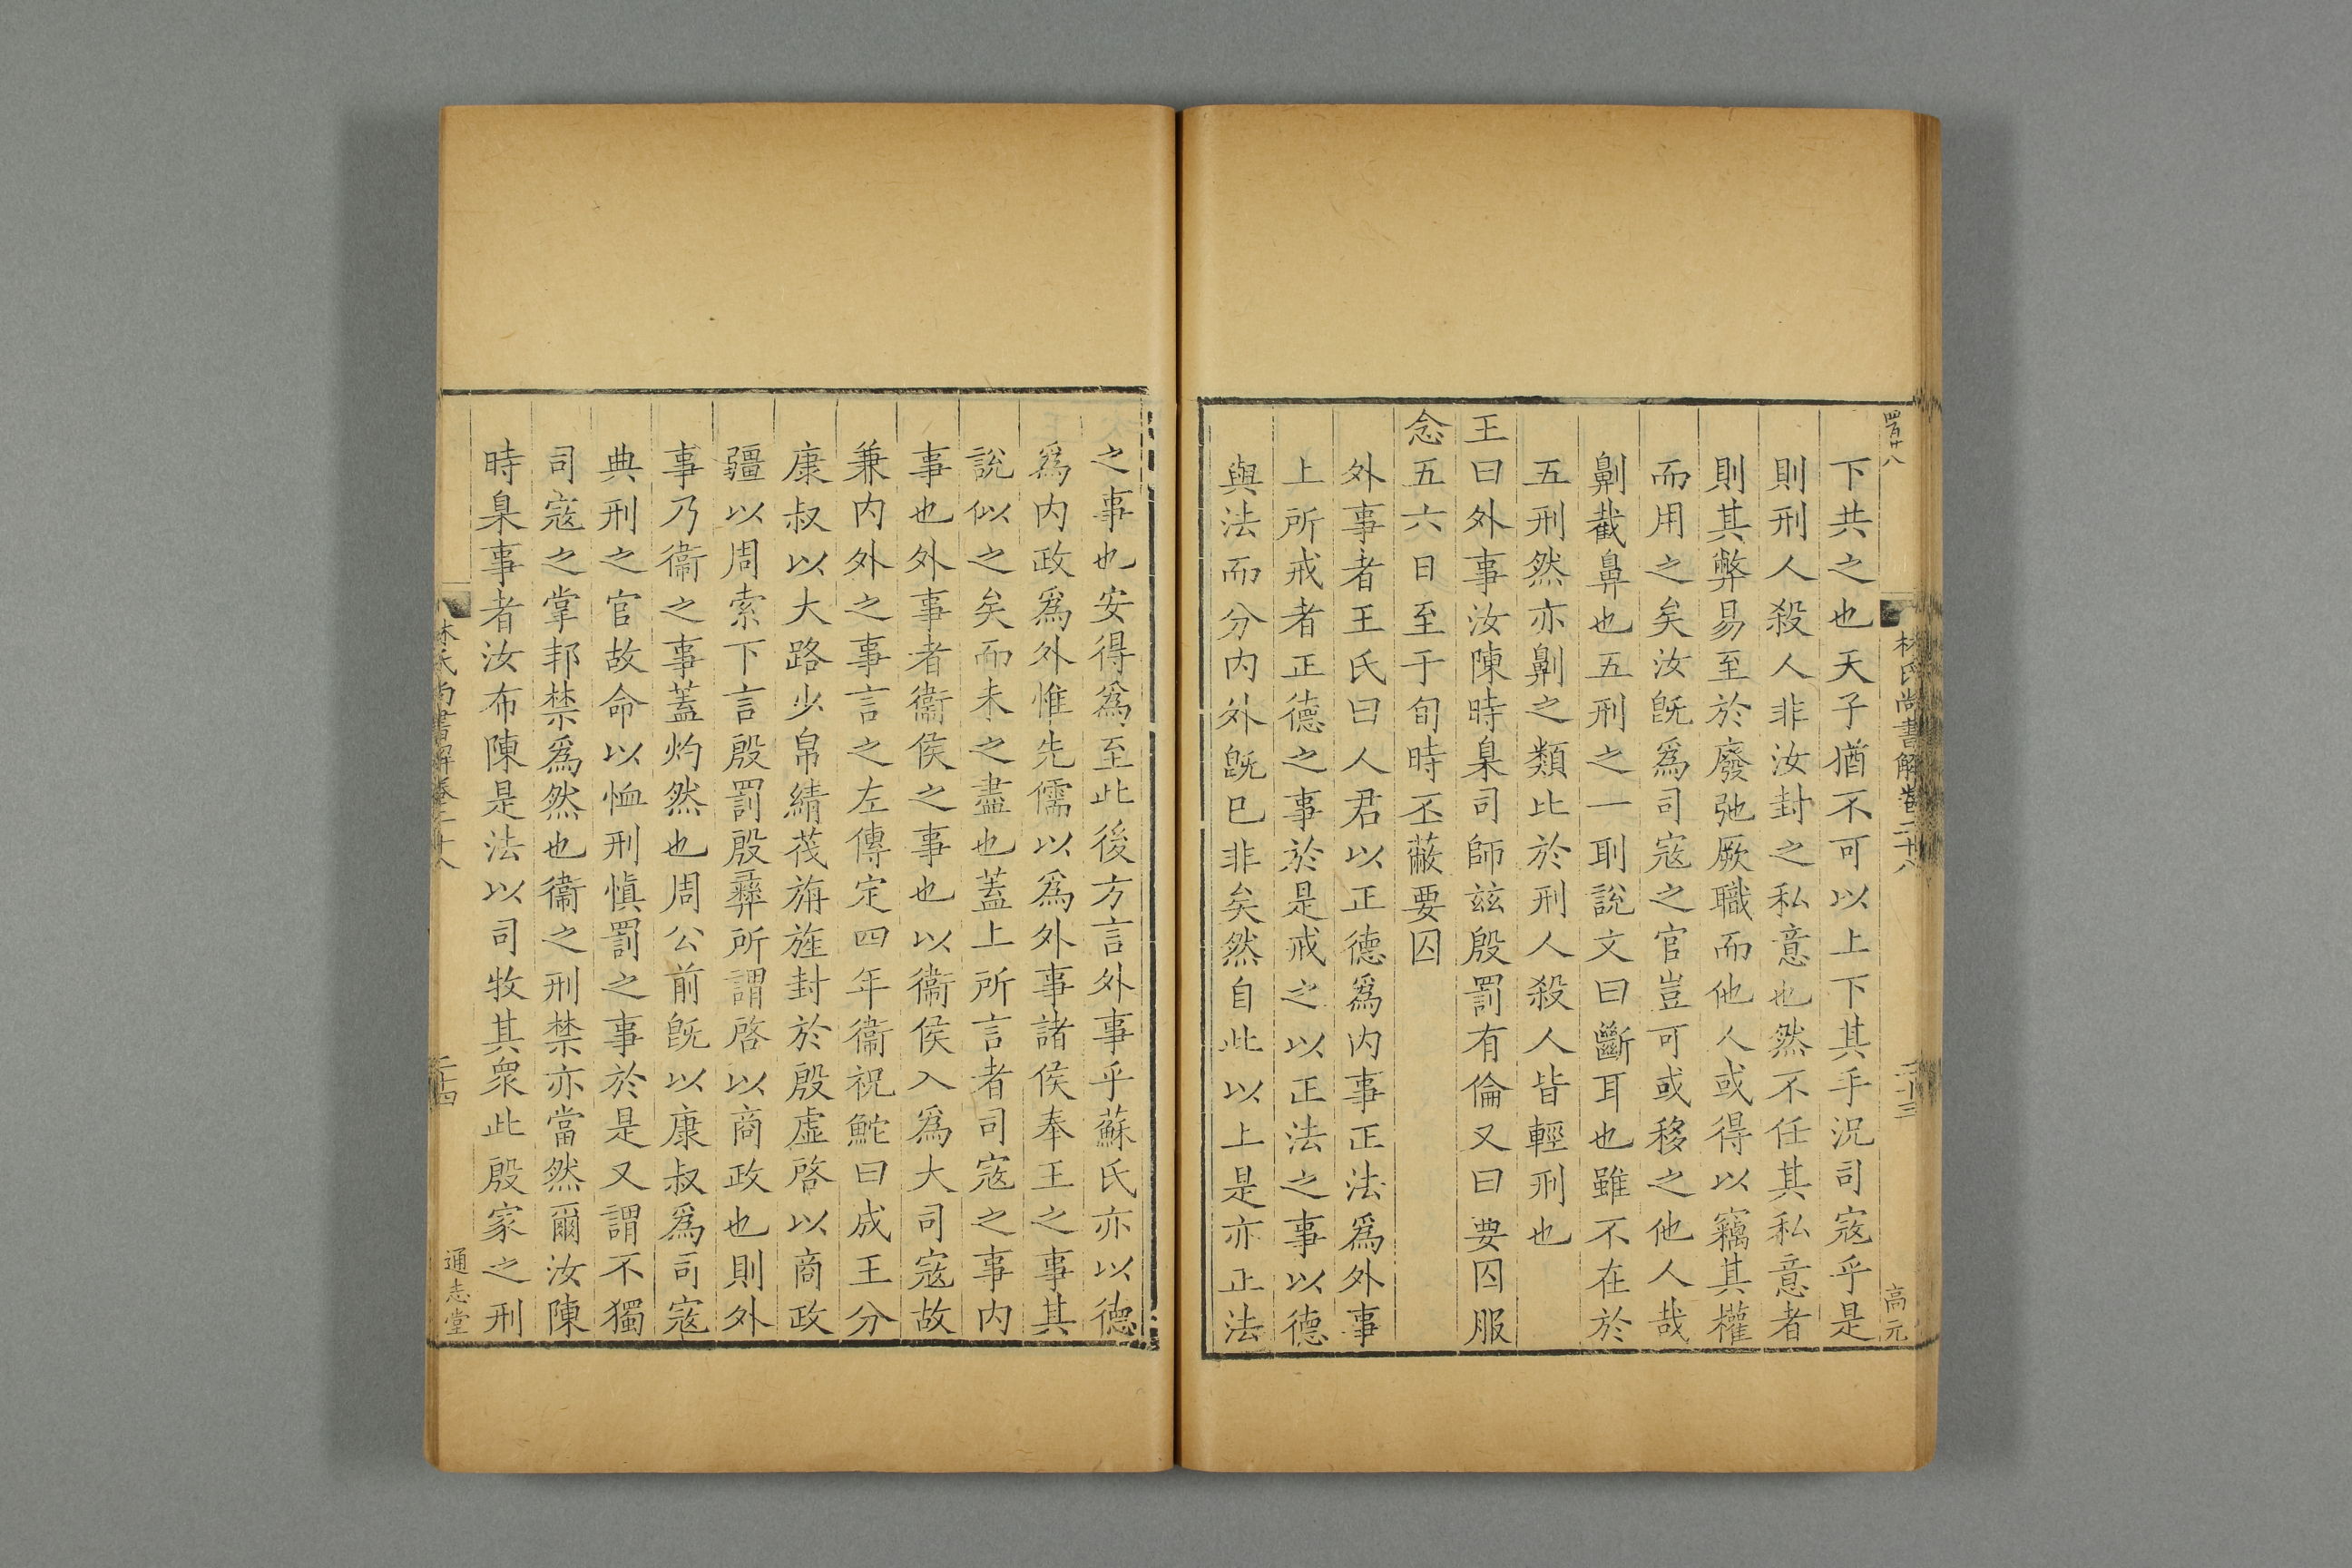 林氏尚書解卷二十八
二十三
高元
下共之也天子猶不可以上下其手況司寇乎是
則刑人殺人非汝封之私意也然不任其私意者
則其弊易至於廢弛厥職而他人或得以竊其權
而用之矣汝旣爲司寇之官豈可或移之他人哉
劓截鼻也五刑之一刵說文曰斷耳也雖不在於
五刑然亦劓之類比於刑人殺人皆輕刑也
王曰外事汝陳時臬司師兹殷罰有倫又曰要囚服
念五六日至于旬時丕蔽要囚
外事者王氏曰人君以正德爲内事正法爲外事
上所戒者正德之事於是戒之以正法之事以德
與法而分内外旣已非矣然自此以上是亦正法
之事也安得爲至此後方言外事乎蘇氏亦以德
爲内政爲外惟先儒以爲外事諸侯奉王之事其
說似之矣而未之盡也蓋上所言者司寇之事内
事也外事者衞侯之事也以衞侯入爲大司寇故
兼内外之事言之左傳定四年衞祝鮀曰成王分
康叔以大路少帛綪茷旃旌封於殷虚啓以商政
疆以周索下言殷罰殷彛所謂啓以商政也則外
事乃衞之事蓋灼然也周公前旣以康叔爲司寇
典刑之官故命以恤刑愼罰之事於是又謂不獨
司寇之掌邦禁爲然也衞之刑禁亦當然爾汝陳
時臬事者汝布陳是法以司牧其衆此殷家之刑
林氏尚書解卷二十八
二十四
通志堂